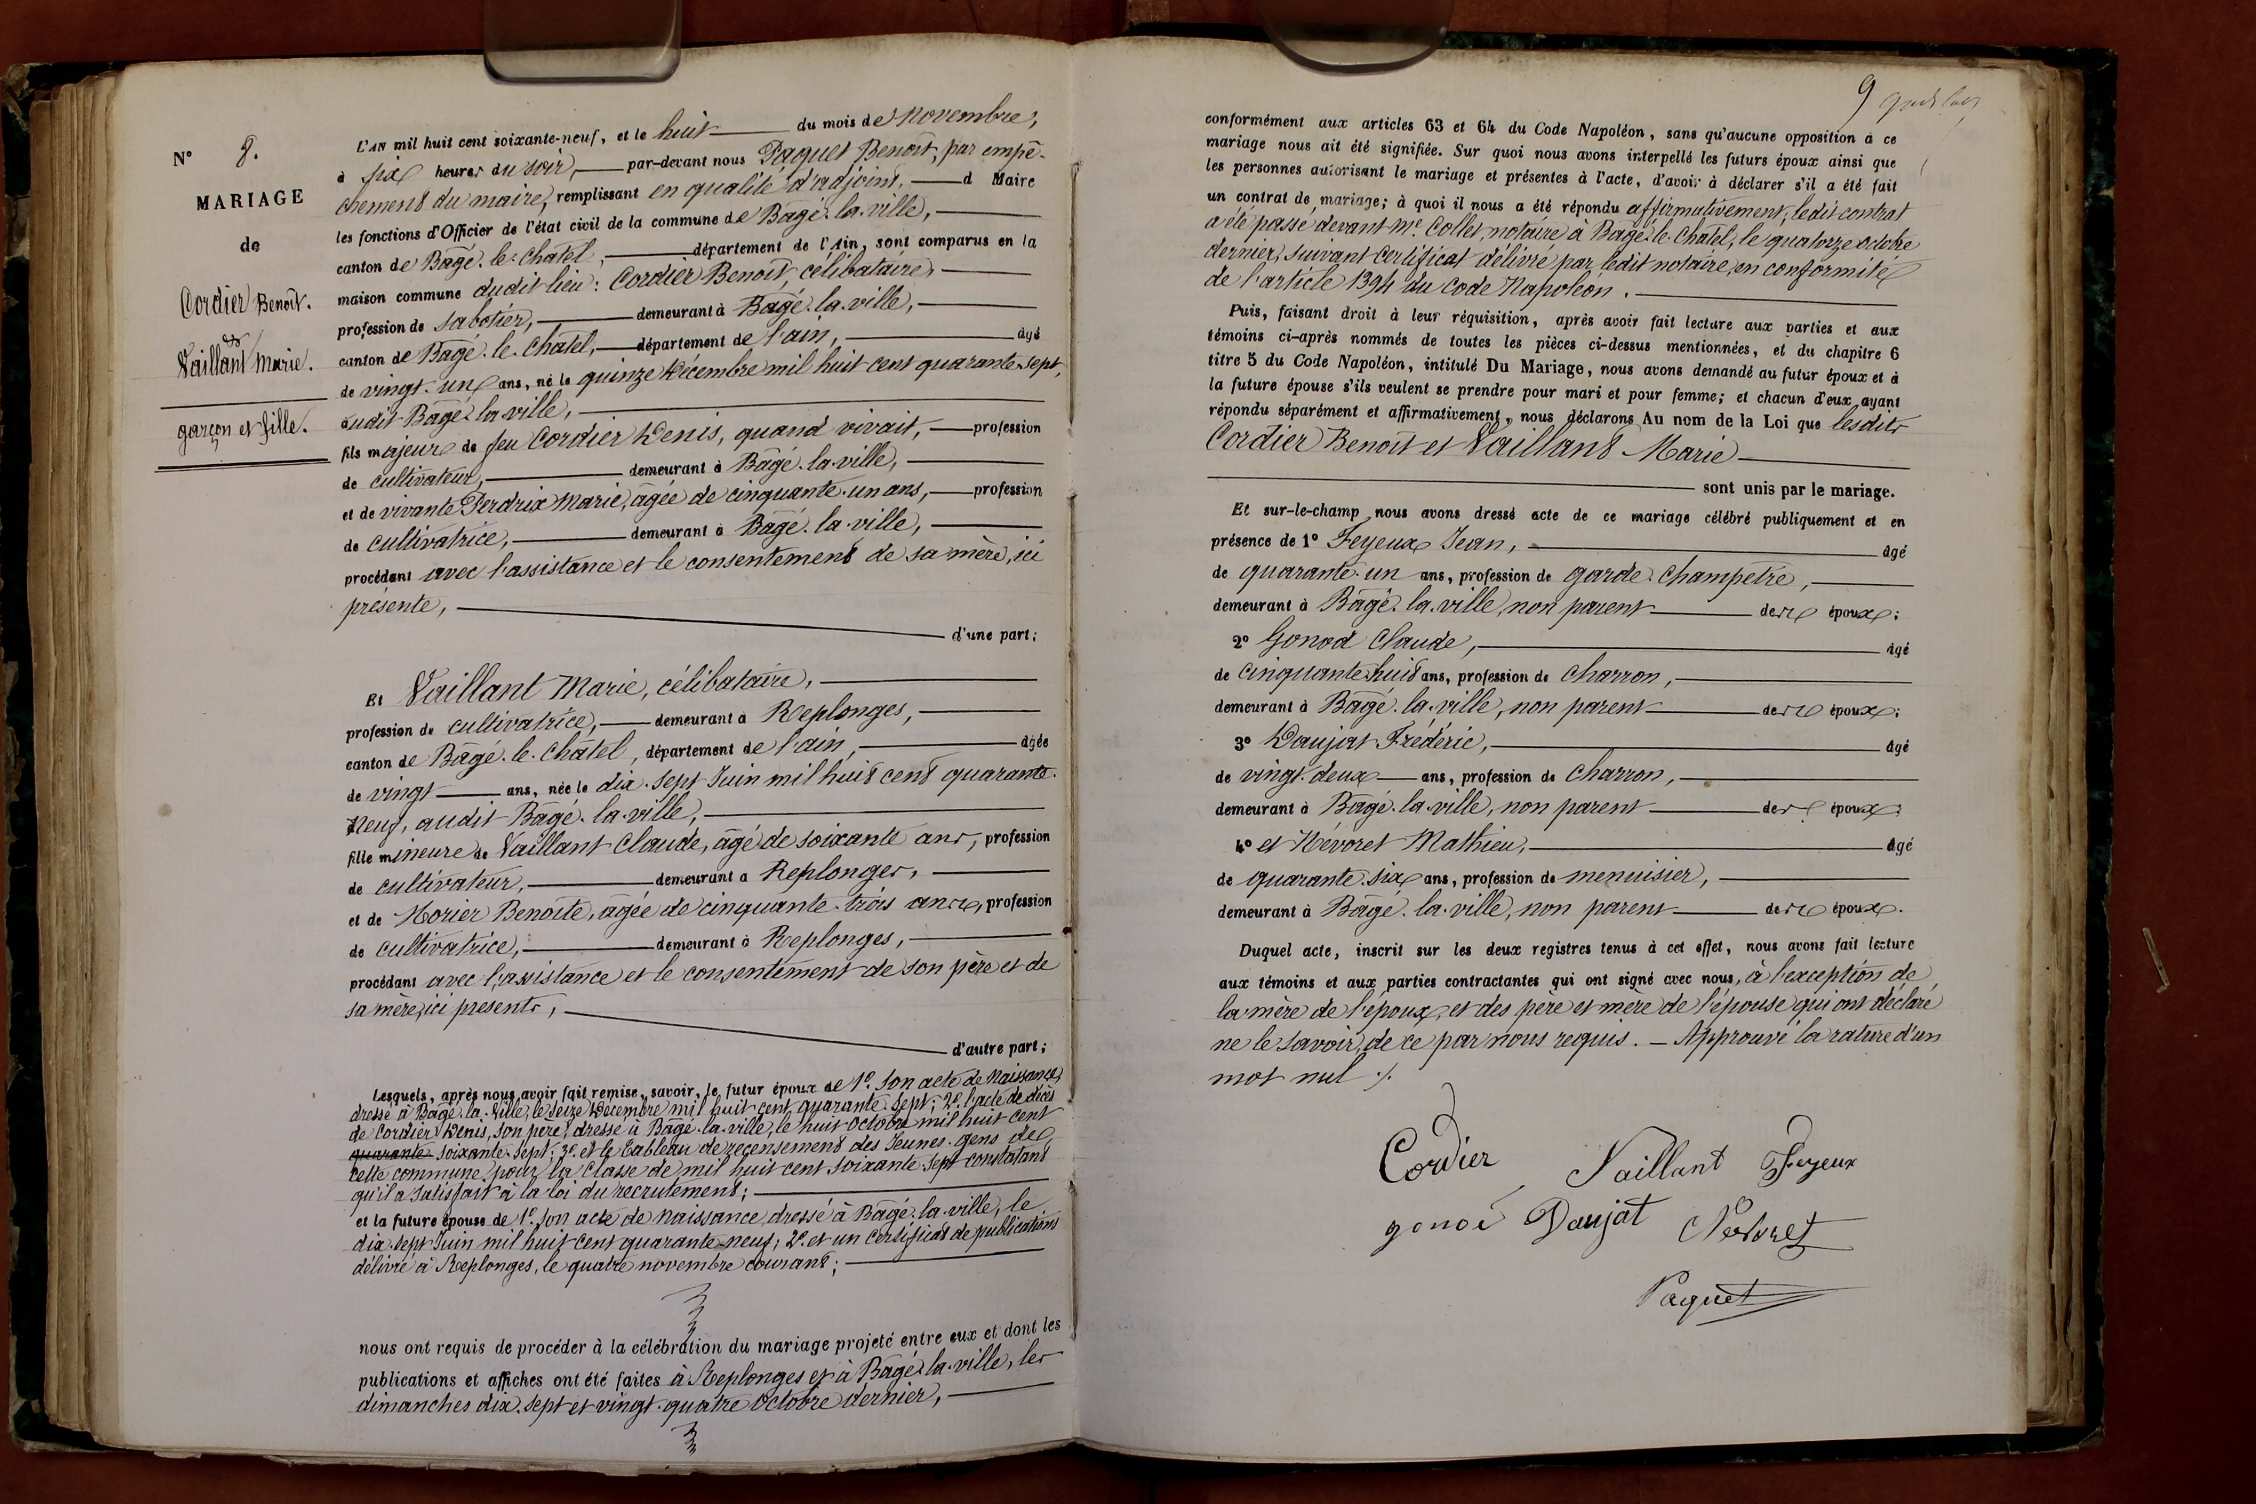 N° 8.
MARIAGE
de
Cordier Benoit.
&
Vaillant Marie.
garçon et fille.
L'AN mil huit cent soixante-neuf, et le huit du mois de Novembre,
à six heures du soir, par-devant nous Paquet Benoit, par empê-
chement du maire, remplissant en qualité d'adjoint, d Maire
les fonctions d'Officier de l'état civil de la commune de Bâgé-la-ville,
canton de Bâgé-le-Châtel, département de l'Ain, sont comparus en la
maison commune dudit lieu : Cordier Benoit, célibataire,
profession de sabotier, demeurant à Bâgé-la-ville,
canton de Bâgé-le-Châtel, département de l'ain, âgé
de vingt-un ans, né le quinze Décembre mil huit cent quarante-sept,
audit Bâgé-la-ville,
fils majeur de feu Cordier Denis, quand vivait, profession
de cultivateur, demeurant à Bâgé-la-ville,
et de vivante Perdrix Marie, âgée de cinquante-un ans, profession
de cultivatrice, demeurant à Bâgé-la-ville,
procédant avec l'assistance et le consentement de sa mère, ici
présente,
d'une part;
Et Vaillant Marie, célibataire,
profession de cultivatrice, demeurant à Replonges,
canton de Bâgé-le-Châtel, département de l'ain, âgée
de vingt ans, née le dix-sept Juin mil huit cent quarante-
neuf, audit Bâgé-la-ville,
fille mineure de Vaillant Claude, âgé de soixante ans, profession
de cultivateur, demeurant à Replonges,
et de Morier Benoite, âgée de cinquante-trois ans, profession
de cultivatrice, demeurant à Replonges,
procédant avec l'assistance et le consentement de son père et de
sa mère, ici présents,
d'autre part;
Lesquels, après nous avoir fait remise, savoir, le futur époux de 1° son acte de Naissance,
dressé à Bâgé-la-Ville, le seize Décembre mil huit cent quarante-sept; 2° l'acte de décès
de Cordier Denis, son père, dressé à Bâgé-la-ville, le huit Octobre mil huit cent
quarante soixante-sept; 3° et le tableau de recensement des Jeunes-gens de
cette commune pour la classe de mil huit cent soixante-sept constatant
qu'il a satisfait à la loi du recrutement;
et la future épouse de 1° son acte de naissance, dressé à Bâgé-la-ville, le
dix-sept Juin mil huit cent quarante-neuf; 2° et un certificat de publications
délivré à Replonges, le quatre novembre courant;
nous ont requis de procéder à la célébration du mariage projeté entre eux et dont les
publications et affiches ont été faites à Replonges et à Bâgé-la-ville, les
dimanches dix-sept et vingt-quatre Octobre dernier,
9
conformément aux articles 63 et 64 du Code Napoléon, sans qu'aucune opposition à ce
mariage nous ait été signifiée. Sur quoi nous avons interpellé les futurs époux ainsi que
les personnes autorisant le mariage et présentes à l'acte, d'avoir à déclarer s'il a été fait
un contrat de mariage; à quoi il nous a été répondu affirmativement, ledit contrat
a été passé devant Me Collet, notaire à Bâgé-le-Châtel, le quatorze octobre
dernier, suivant certificat délivré par ledit notaire, en conformité
de l'article 1394 du code Napoléon.
Puis, faisant droit à leur réquisition, après avoir fait lecture aux parties et aux
témoins ci-après nommés de toutes les pièces ci-dessus mentionnées, et du chapitre 6
titre 5 du Code Napoléon, intitulé Du Mariage, nous avons demandé au futur époux et à
la future épouse s'ils veulent se prendre pour mari et pour femme; et chacun d'eux ayant
répondu séparément et affirmativement, nous déclarons Au nom de la Loi que lesdits
Cordier Benoit et Vaillant Marie
sont unis par le mariage.
Et sur-le-champ nous avons dressé acte de ce mariage célébré publiquement et en
présence de 1° Feyeux Jean, âgé
de quarante-un ans, profession de garde-champêtre,
demeurant à Bâgé-la-ville, non parent des époux;
2° Gonod Claude, âgé
de cinquante-huit ans, profession de charron,
demeurant à Bâgé-la-ville, non parent des époux;
3° Daujat Frédéric, âgé
de vingt-deux ans, profession de charron,
demeurant à Bâgé-la-ville, non parent des époux;
4° et Névoret Mathieu, âgé
de quarante-six ans, profession de menuisier,
demeurant à Bâgé-la-ville, non parent des époux.
Duquel acte, inscrit sur les deux registres tenus à cet effet, nous avons fait lecture
aux témoins et aux parties contractantes qui ont signé avec nous, à l'exception de
la mère de l'époux, et des père et mère de l'épouse qui ont déclaré
ne le savoir, de ce par nous requis. — Approuvé la rature d'un
mot nul ./.
Cordier Vaillant Feyeux
gonod Daujat Névoret
Paquet